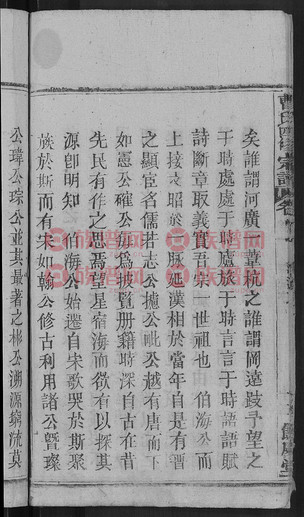 矣誰謂河廣一葦杭之誰謂岡遠跂予望之
于時處處于時廬旅于時言言于時語語賦
詩斷章取義實吾宗一世祖也 伯海公而
上接文昭於 脉延漢相於當年自是有晋
之顯宦名儒若志公攄公毗公越有唐而下
如憲公確公 為披覽册籍時深自古在昔
先民有作之思焉望星宿海而欲有以探其
源卽明知 伯海公始遷自宋歌哭於斯聚
族於斯而有宋如翰公修古利用諸公曁璨
公瑋公琮公並其最著之彬公溯源窮流莫